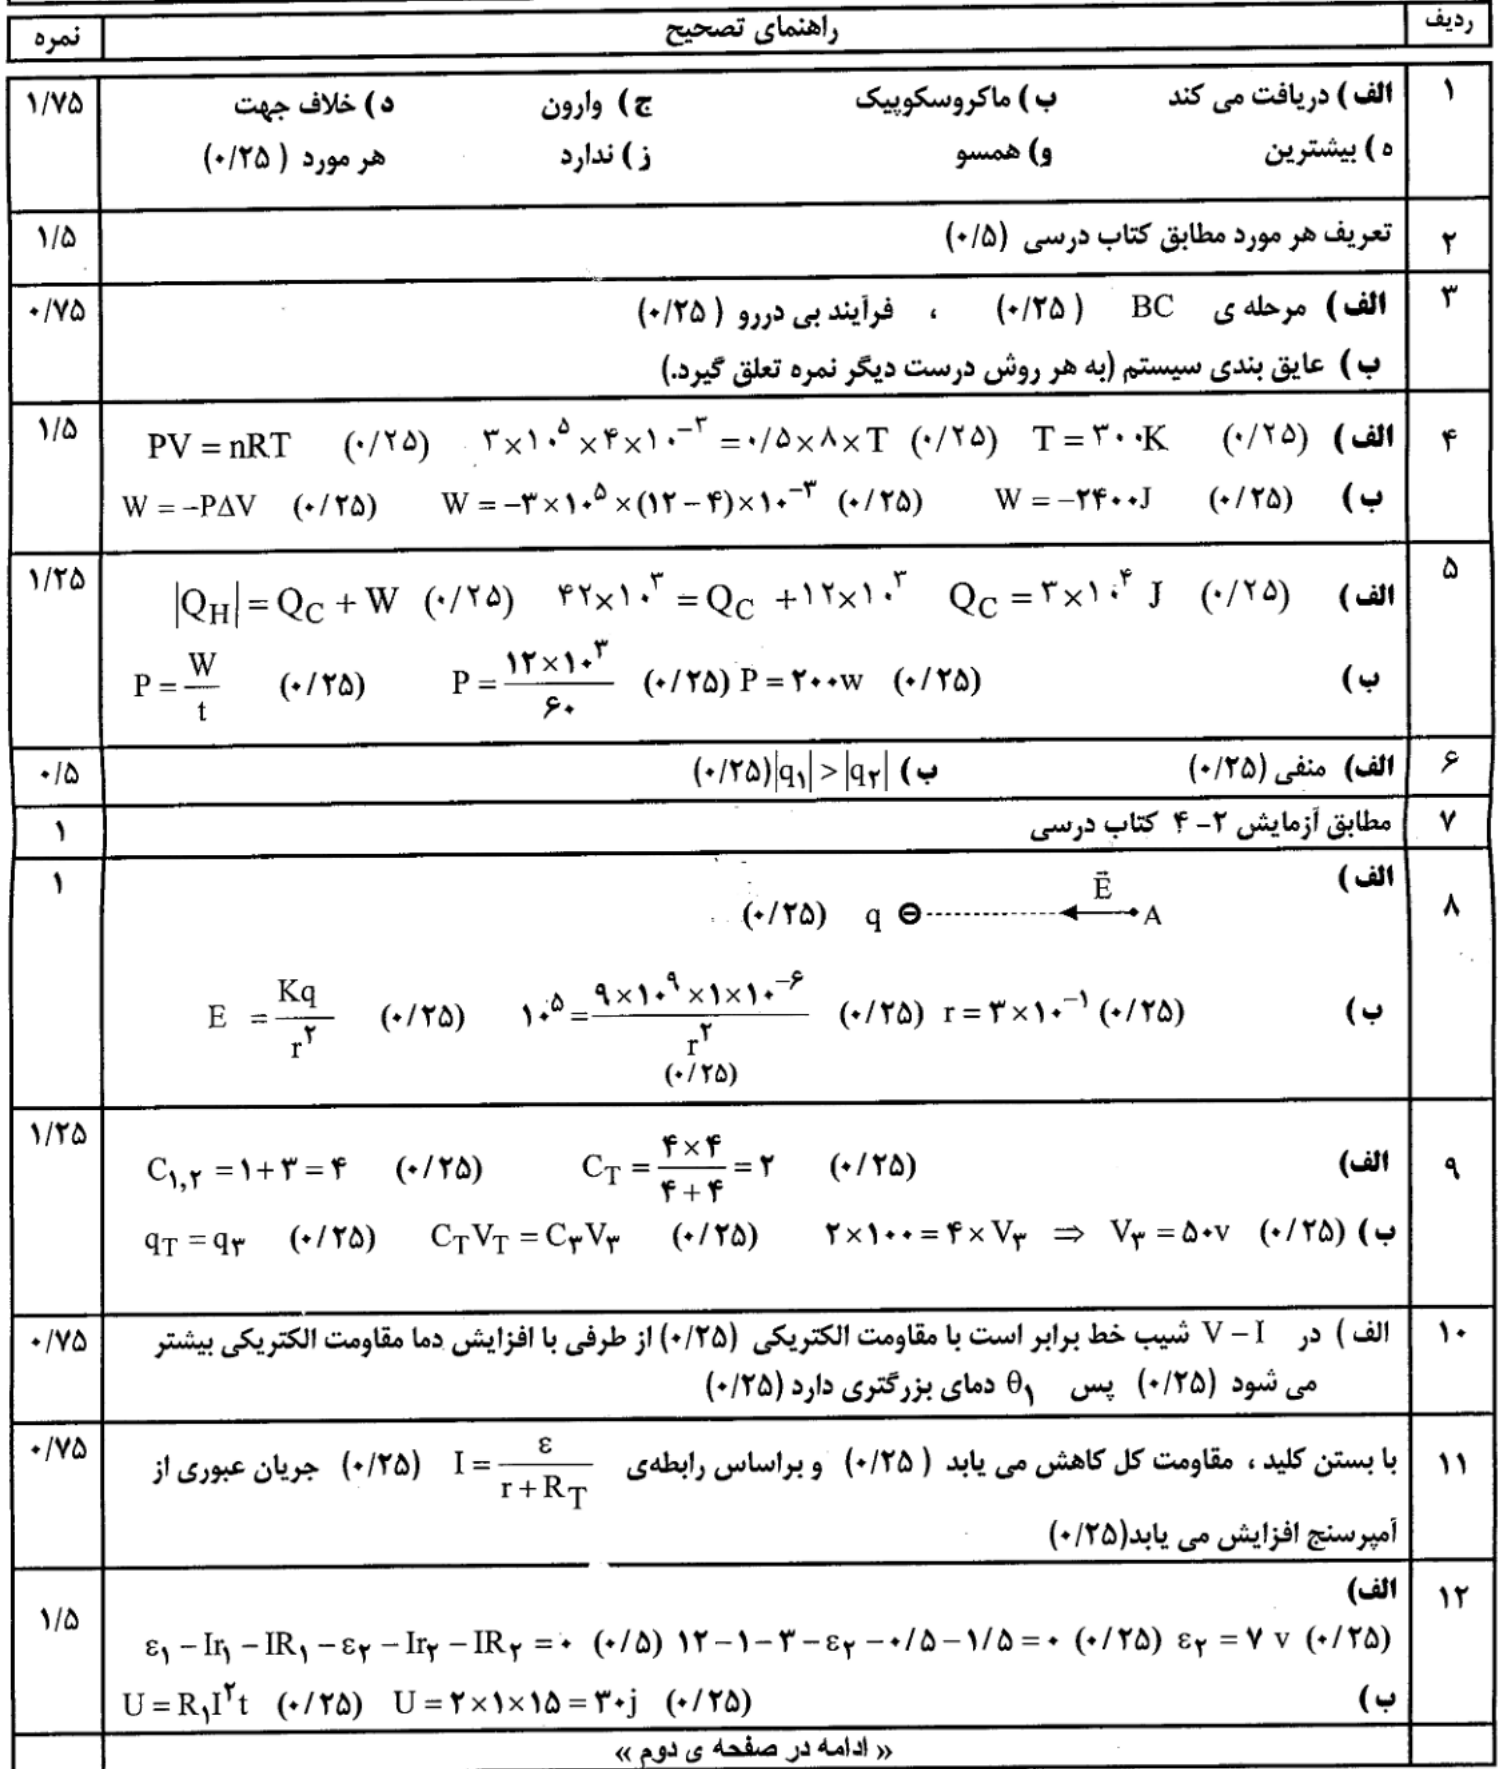 ردیف راهنمای تصحیح نمره
۱ الف) دریافت می کند ب) ماکروسکوپیک ج) وارون د) خلاف جهت ۱/۷۵
ه) بیشترین و) همسو ز) ندارد هر مورد (۰/۲۵)
۲ تعریف هر مورد مطابق کتاب درسی (۰/۵) ۱/۵
۳ الف) مرحله ی BC (۰/۲۵) ، فرآیند بی دررو (۰/۲۵) ۰/۷۵
ب) عایق بندی سیستم (به هر روش درست دیگر نمره تعلق گیرد.)
۴ الف) PV = nRT (۰/۲۵) ۳×۱۰^۵×۴×۱۰^-۳ = ۰/۵×۸×T (۰/۲۵) T = ۳۰۰K (۰/۲۵) ۱/۵
ب) W = -PΔV (۰/۲۵) W = -۳×۱۰^۵×(۱۲-۴)×۱۰^-۳ (۰/۲۵) W = -۲۴۰۰J (۰/۲۵)
۵ الف) |Q_H| = Q_C + W (۰/۲۵) ۴۲×۱۰^۳ = Q_C +۱۲×۱۰^۳ Q_C = ۳×۱۰^۴ J (۰/۲۵) ۱/۲۵
ب) P = W/t (۰/۲۵) P = ۱۲×۱۰^۳/۶۰ (۰/۲۵) P = ۲۰۰w (۰/۲۵)
۶ الف) منفی (۰/۲۵) ب) |q_۱| > |q_۲| (۰/۲۵) ۰/۵
۷ مطابق آزمایش ۲- ۴ کتاب درسی ۱
۸ الف) ۱
(۰/۲۵) q ⊖ E A
ب) E = Kq/r^۲ (۰/۲۵) ۱۰^۵ = ۹×۱۰^۹×۱×۱۰^-۶/r^۲ (۰/۲۵) r = ۳×۱۰^-۱ (۰/۲۵)
(۰/۲۵)
۹ الف) C_۱,۲ = ۱+۳ = ۴ (۰/۲۵) C_T = ۴×۴/۴+۴ = ۲ (۰/۲۵) ۱/۲۵
ب) q_T = q_۳ (۰/۲۵) C_TV_T = C_۳V_۳ (۰/۲۵) ۲×۱۰۰ = ۴×V_۳ ⇒ V_۳ = ۵۰v (۰/۲۵)
۱۰ الف) در V-I شیب خط برابر است با مقاومت الکتریکی (۰/۲۵) از طرفی با افزایش دما مقاومت الکتریکی بیشتر ۰/۷۵
می شود (۰/۲۵) پس θ_۱ دمای بزرگتری دارد (۰/۲۵)
۱۱ با بستن کلید ، مقاومت کل کاهش می یابد (۰/۲۵) و براساس رابطه‌ی I = ε/r+R_T (۰/۲۵) جریان عبوری از ۰/۷۵
آمپرسنج افزایش می یابد(۰/۲۵)
۱۲ الف) ۱/۵
ε_۱ - Ir_۱ - IR_۱ - ε_۲ - Ir_۲ - IR_۲ = ۰ (۰/۵) ۱۲-۱-۳-ε_۲-۰/۵-۱/۵ = ۰ (۰/۲۵) ε_۲ = ۷ v (۰/۲۵)
ب) U = R_۱I^۲t (۰/۲۵) U = ۲×۱×۱۵ = ۳۰j (۰/۲۵)
« ادامه در صفحه ی دوم »